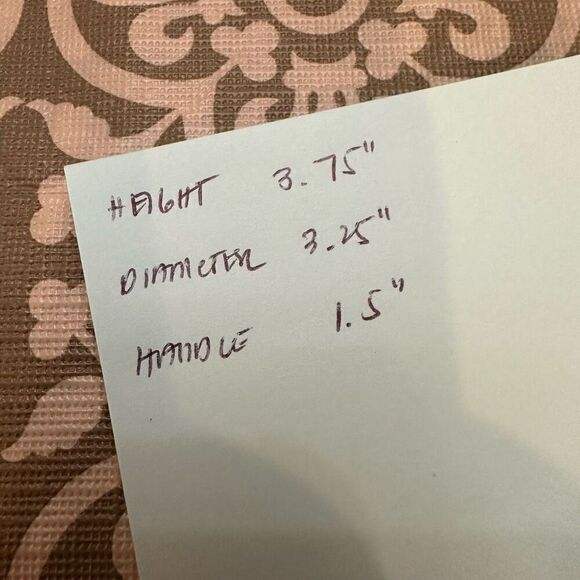 HEIGHT 3.75"
DIAMETER 3.25"
HANDLE 1.5"